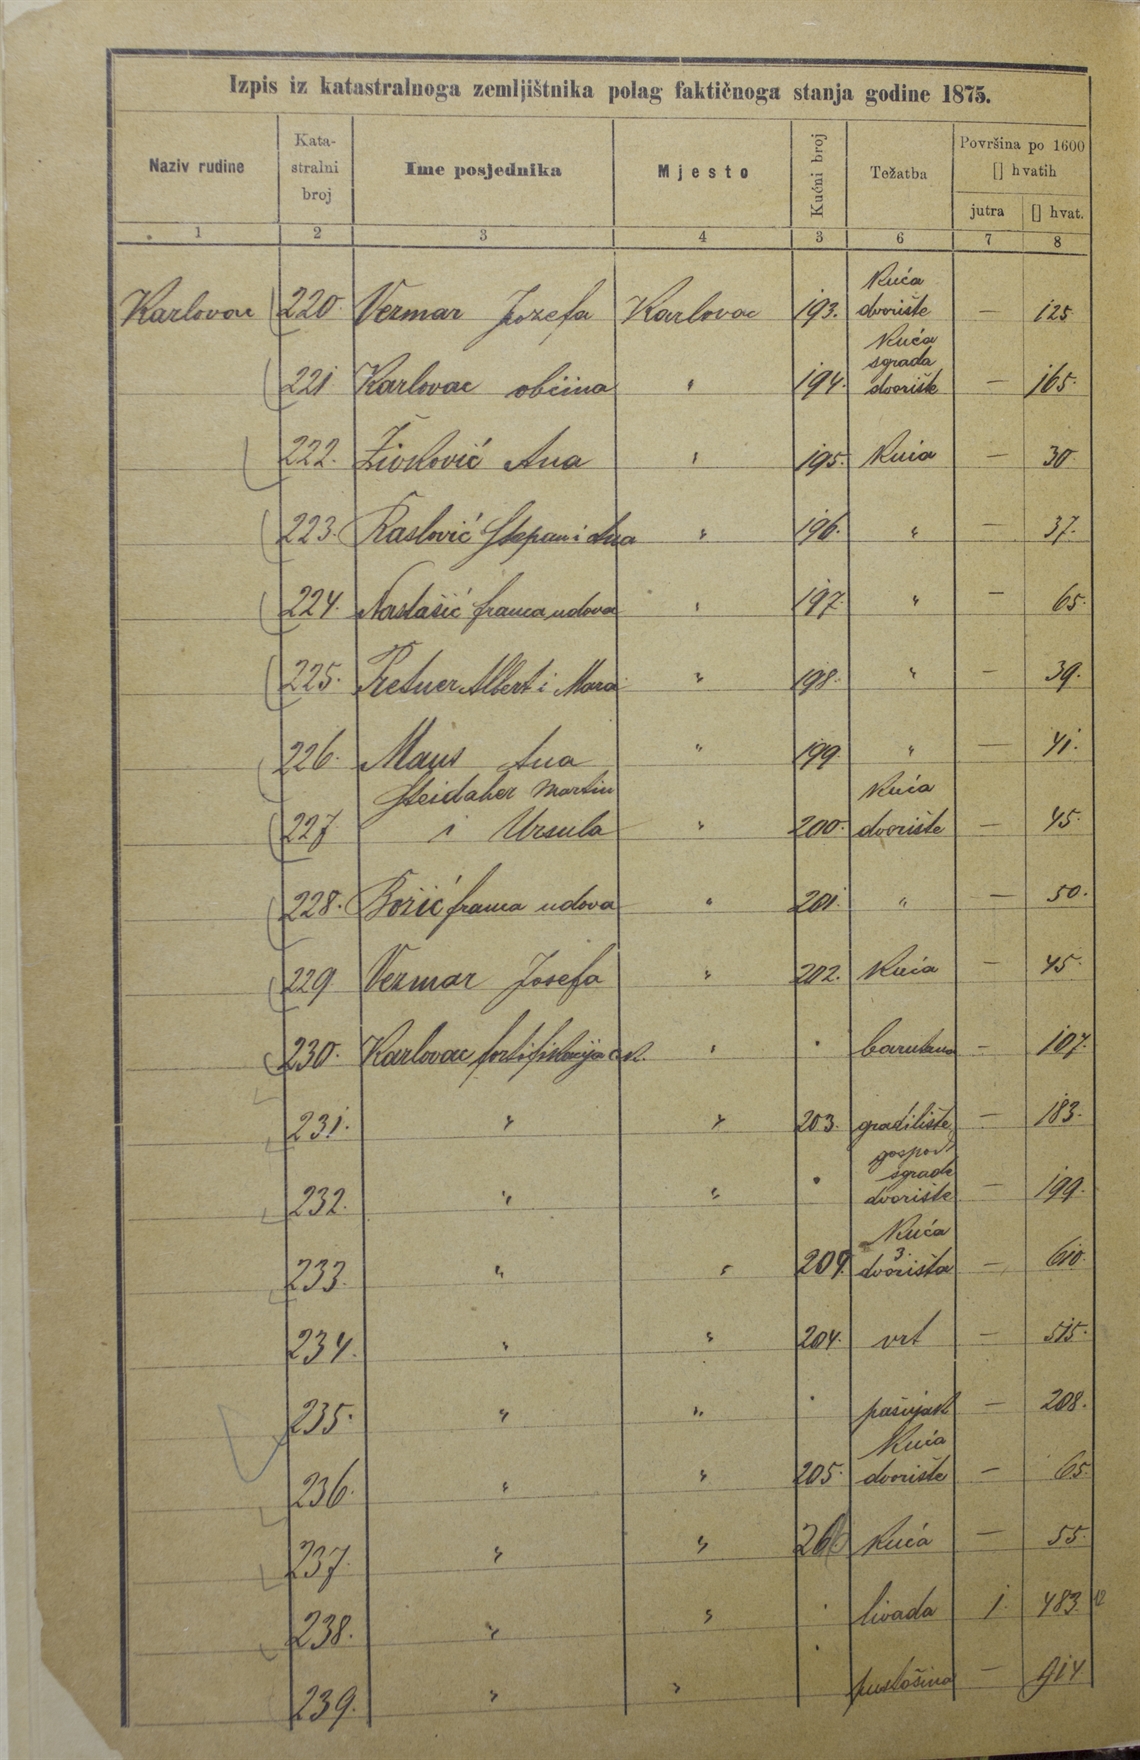 Izpis iz katastralnoga zemljištnika polag faktičnoga stanja godine 1875.
Naziv rudine Kata-stralni broj Ime posjednika Mjesto Kućni broj Težatba Površina po 1600 [] hvatih
jutra [] hvat.
1 2 3 4 3 6 7 8
Kuća
Karlovac 220. Vermar Jozefa Karlovac 193. dvorište — 125
Kuća
sgrada
221 Karlovac obćina " 194. dvorište — 165.
222. Živković Ana " 195. Kuća — 30.
223. Raslović Stepan i Ana " 196. " — 37.
224. Nastašić franca udova " 197. " — 65.
225. Albert i Mara " 198. " — 39.
226. Maus Ana " 199. " — 41.
Martin Kuća
227. i Ursula " 200. dvorište — 45.
228. Božić franca udova " 201. " — 50.
229. Vermar Josefa " 202. Kuća — 45.
230. Karlovac fortifikacija " . barutana — 107.
231. " " 203. gradilište — 183.
gospod
sgrade
232. " " . dvorište — 199.
Kuća
3.
233. " " 204. dvorišta — 610.
234. " " 204. vrt — 515.
235. " " . pašnjak — 208.
Kuća
236. " " 205. dvorište — 65.
237. " " Kuća — 55.
238. " " . livada 1. 483. 12
239. " " . pustošina — 914